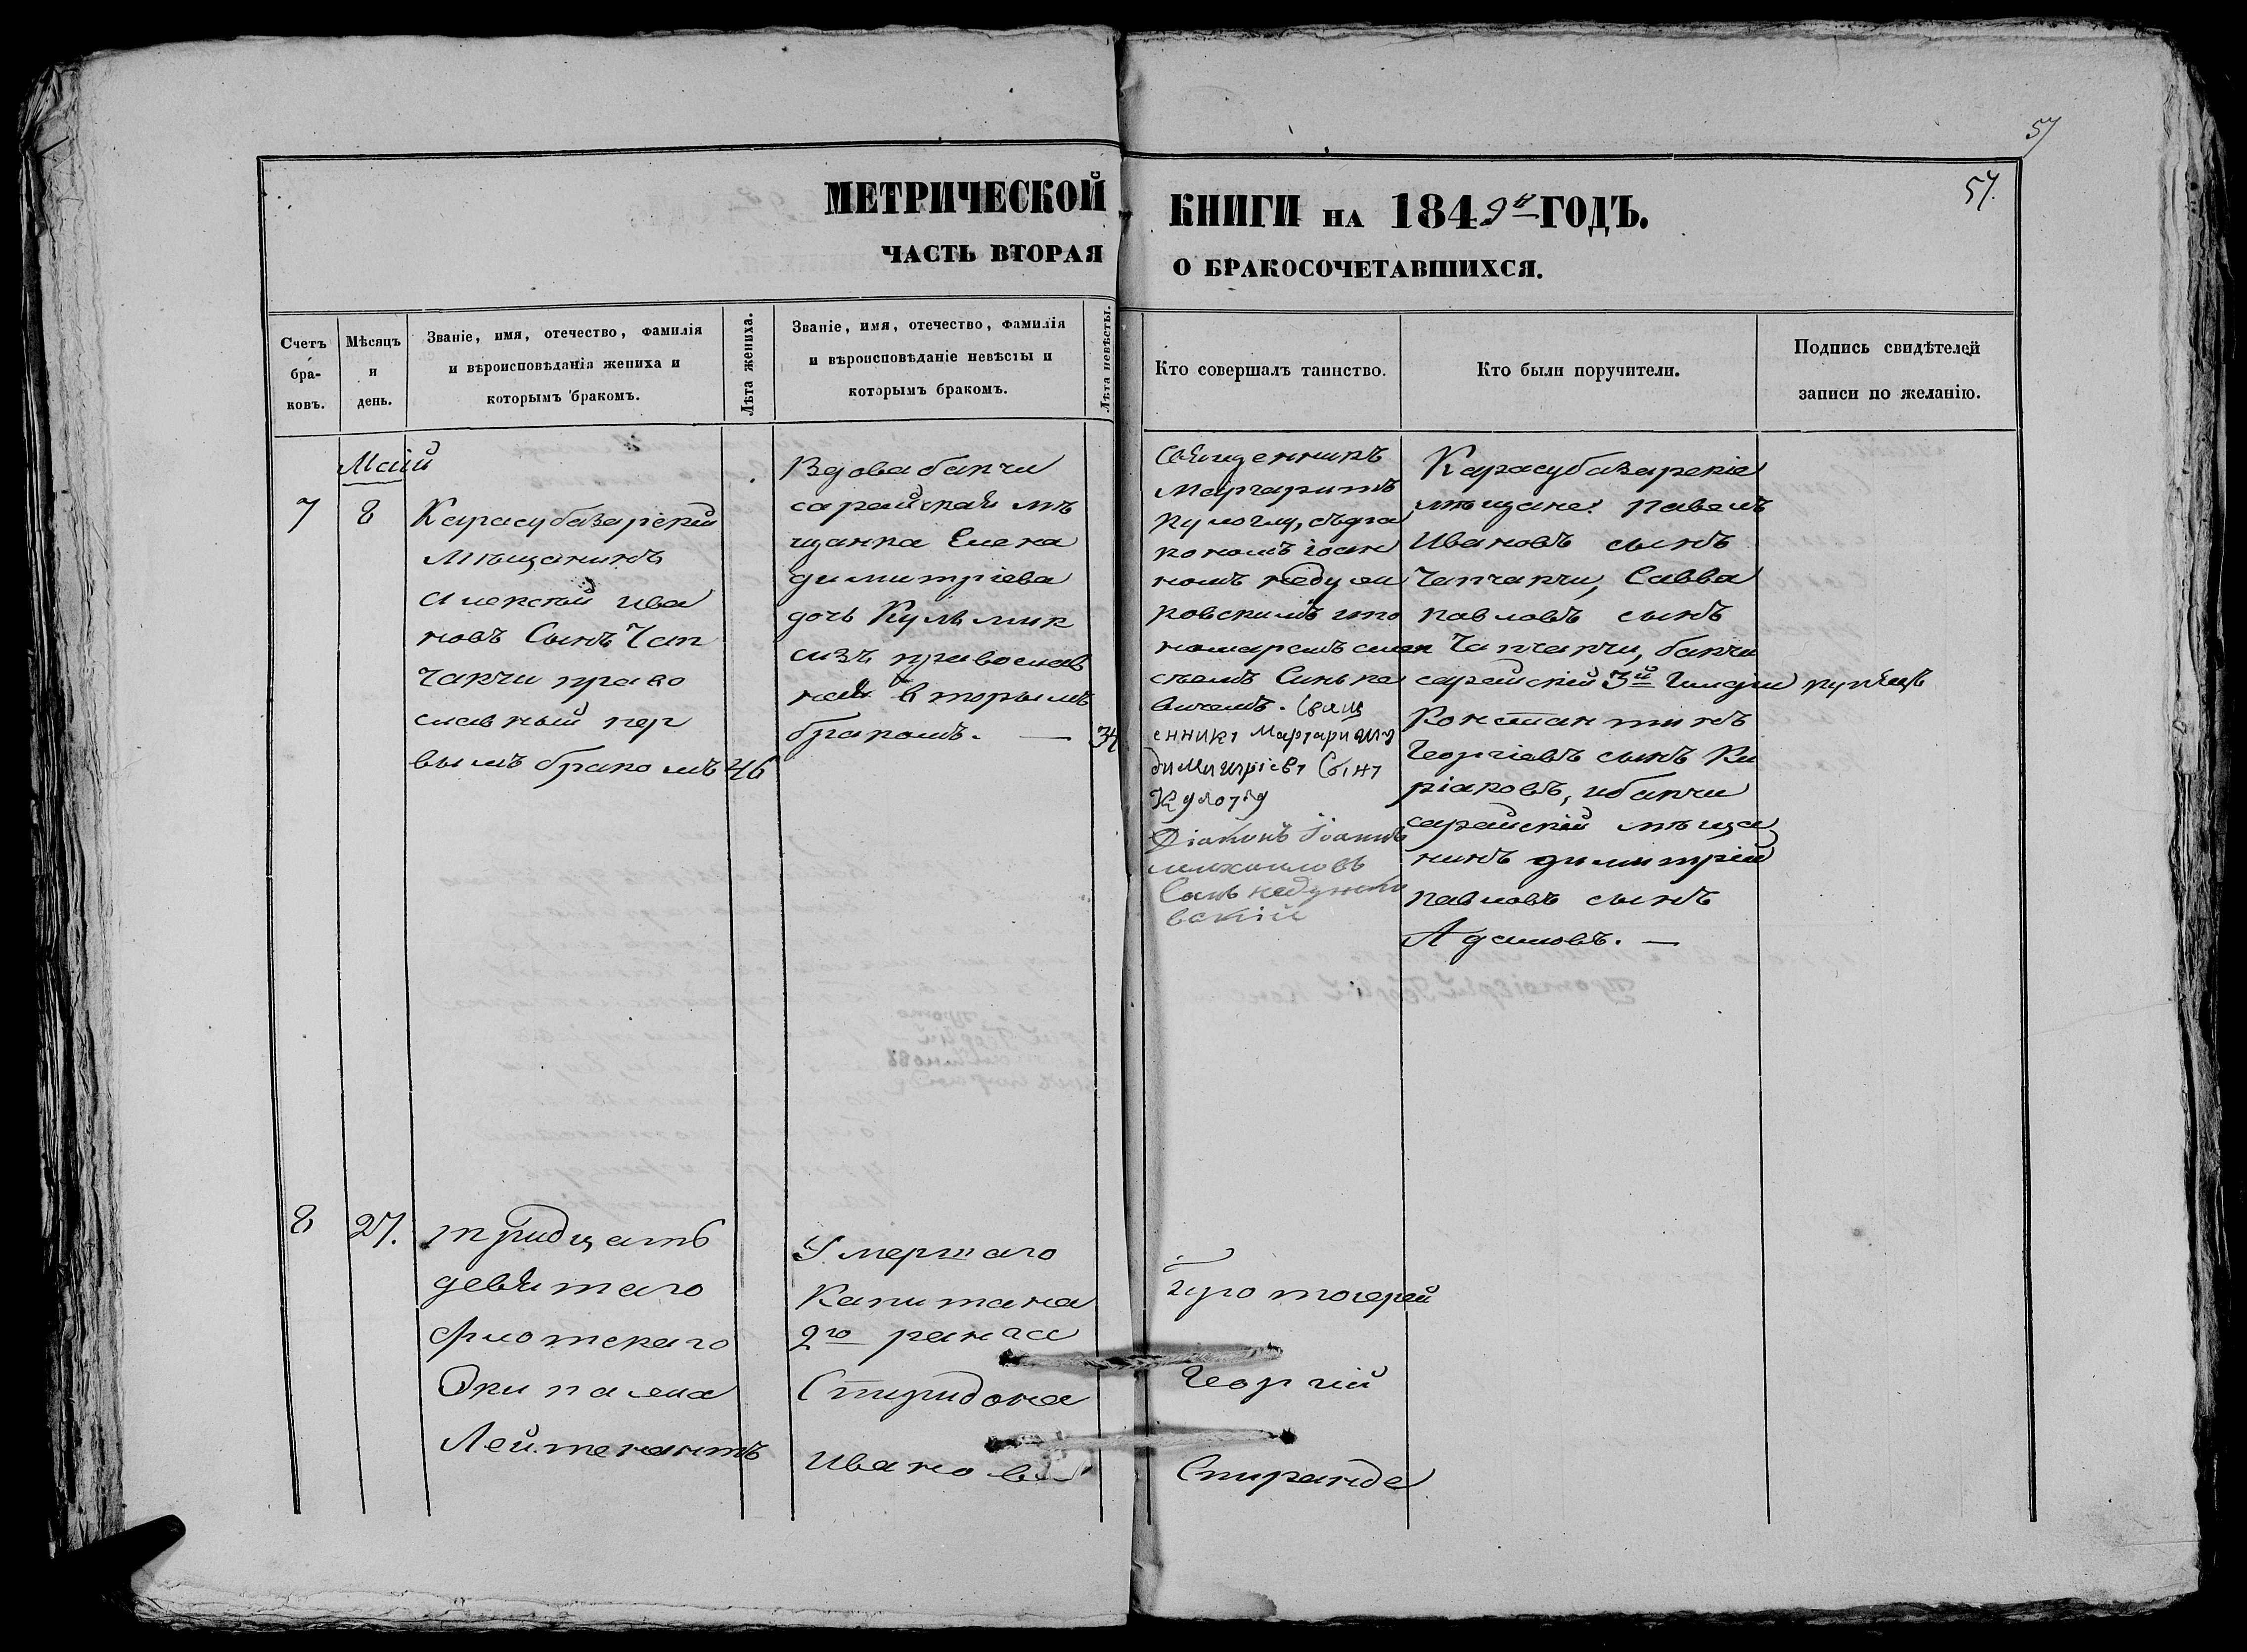 57
57.
МЕТРИЧЕСКОЙ КНИГИ НА 1849й ГОДЪ.
ЧАСТЬ ВТОРАЯ О БРАКОСОЧЕТАВШИХСЯ.
Счетъ бра-ковъ.
Мѣсяцъ и день.
Званіе, имя, отечество, фамилія
и вѣроисповѣданія жениха и
которымъ бракомъ.
Лѣта жениха.
Званіе, имя, отечество, фамилія
и вѣроисповѣданіе невѣсты и
которымъ бракомъ.
Лѣта невѣсты.
Кто совершалъ таинство.
Кто были поручители.
Подпись свидѣтелей
записи по желанію.
Маій
7
8
Карасубазарскій
мѣщанинъ
Алексѣй Ива
новъ Сынъ Чап
чакчи право
славный пер
вымъ бракомъ
46
Вдова бакчи
сарайская мѣ
щанка Елена
димитріева
дочь
православ
ная вторымъ
бракомъ. —
34
Священникъ
Маргаритъ
Кулоглу, съдіа
кономъ Іоан
номъ
ровскимъ ипо
номаремъ
Свящ
енникъ Маргаритъ
димитріевъ Сынъ
Кулоглу
Діаконъ Іоаннъ
михаиловъ
Сынъ
вскій
Карасубазарскіе
мѣщане: павелъ
Ивановъ сынъ
Чапчакчи, Савва
павловъ сынъ
Чапчакчи, бакчи
сарайскій 3й Гилдіи купецъ
Константинъ
Георгіевъ сынъ Ки
ріаковъ, ибакчи
сарайскій мѣща
нинъ димитрій
павловъ сынъ
Адамовъ. —
8
27.
тридцать
девятаго
флотскаго
Экипажа
Лейтенантъ
Умершаго
Капитана
2го ранга
Спиридона
Иванова
Протоіерей
Георгій
Спиранде